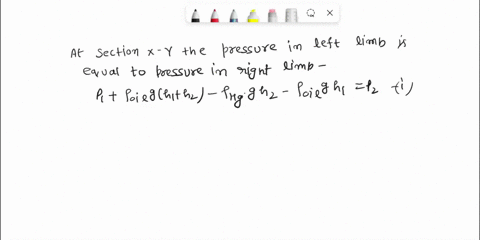 At section X-Y the pressure in left limb is
equal to pressure in right limb –
P₁ + ρoil g(h₁+h₂) – ρHg·g h₂ – ρoil g h₁ = P₂ –(i)